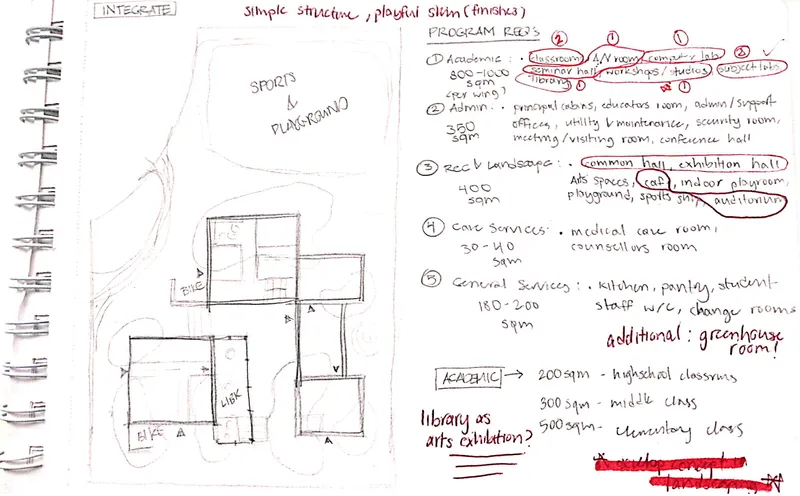 INTEGRATE
simple structure, playful skin (finishes)
SPORTS
&
PLAYGROUND
BIKE
LIBR
BIKE
PROGRAM REQ'S
2 1 1
1 Academic : • classroom, A/V room, computer lab,
800-1000 seminar hall, workshops/studios, subject labs, 2
sqm library 1 1
(per wing?)
2 Admin : • principal cabins, educators room, admin/support
350 offices, utility & maintenance, security room,
sqm meeting/visiting room, conference hall
3 Rec & Landscape : • common hall, exhibition hall
400 Arts spaces, caf, indoor playroom,
sqm playground, sports, auditorium
4 Care Services : • medical care room,
30-40 counsellors room
sqm
5 General Services : • kitchen, pantry, student
180-200 staff w/c, change rooms
sqm
additional : greenhouse
room!
ACADEMIC → 200 sqm - highschool classrms
300 sqm - middle class
500 sqm - elementary class
library as
arts exhibition?
develop concept in
landscaping